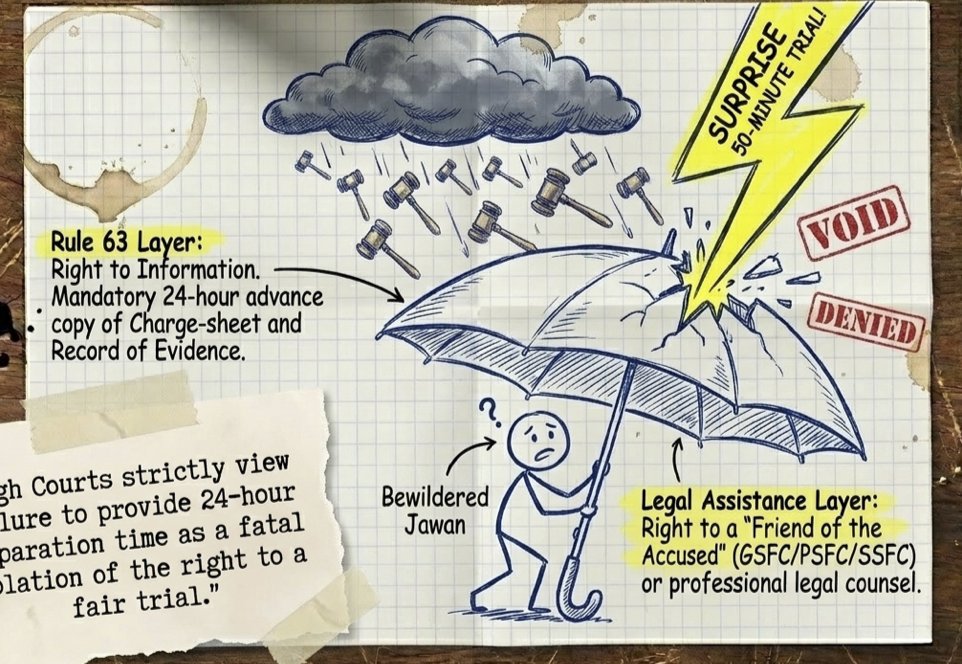 SURPRISE
50-MINUTE TRIAL!
VOID
DENIED
Rule 63 Layer:
Right to Information.
Mandatory 24-hour advance
copy of Charge-sheet and
Record of Evidence.
?
Bewildered
Jawan
Legal Assistance Layer:
Right to a "Friend of the
Accused" (GSFC/PSFC/SSFC)
or professional legal counsel.
gh Courts strictly view
lure to provide 24-hour
paration time as a fatal
olation of the right to a
fair trial."